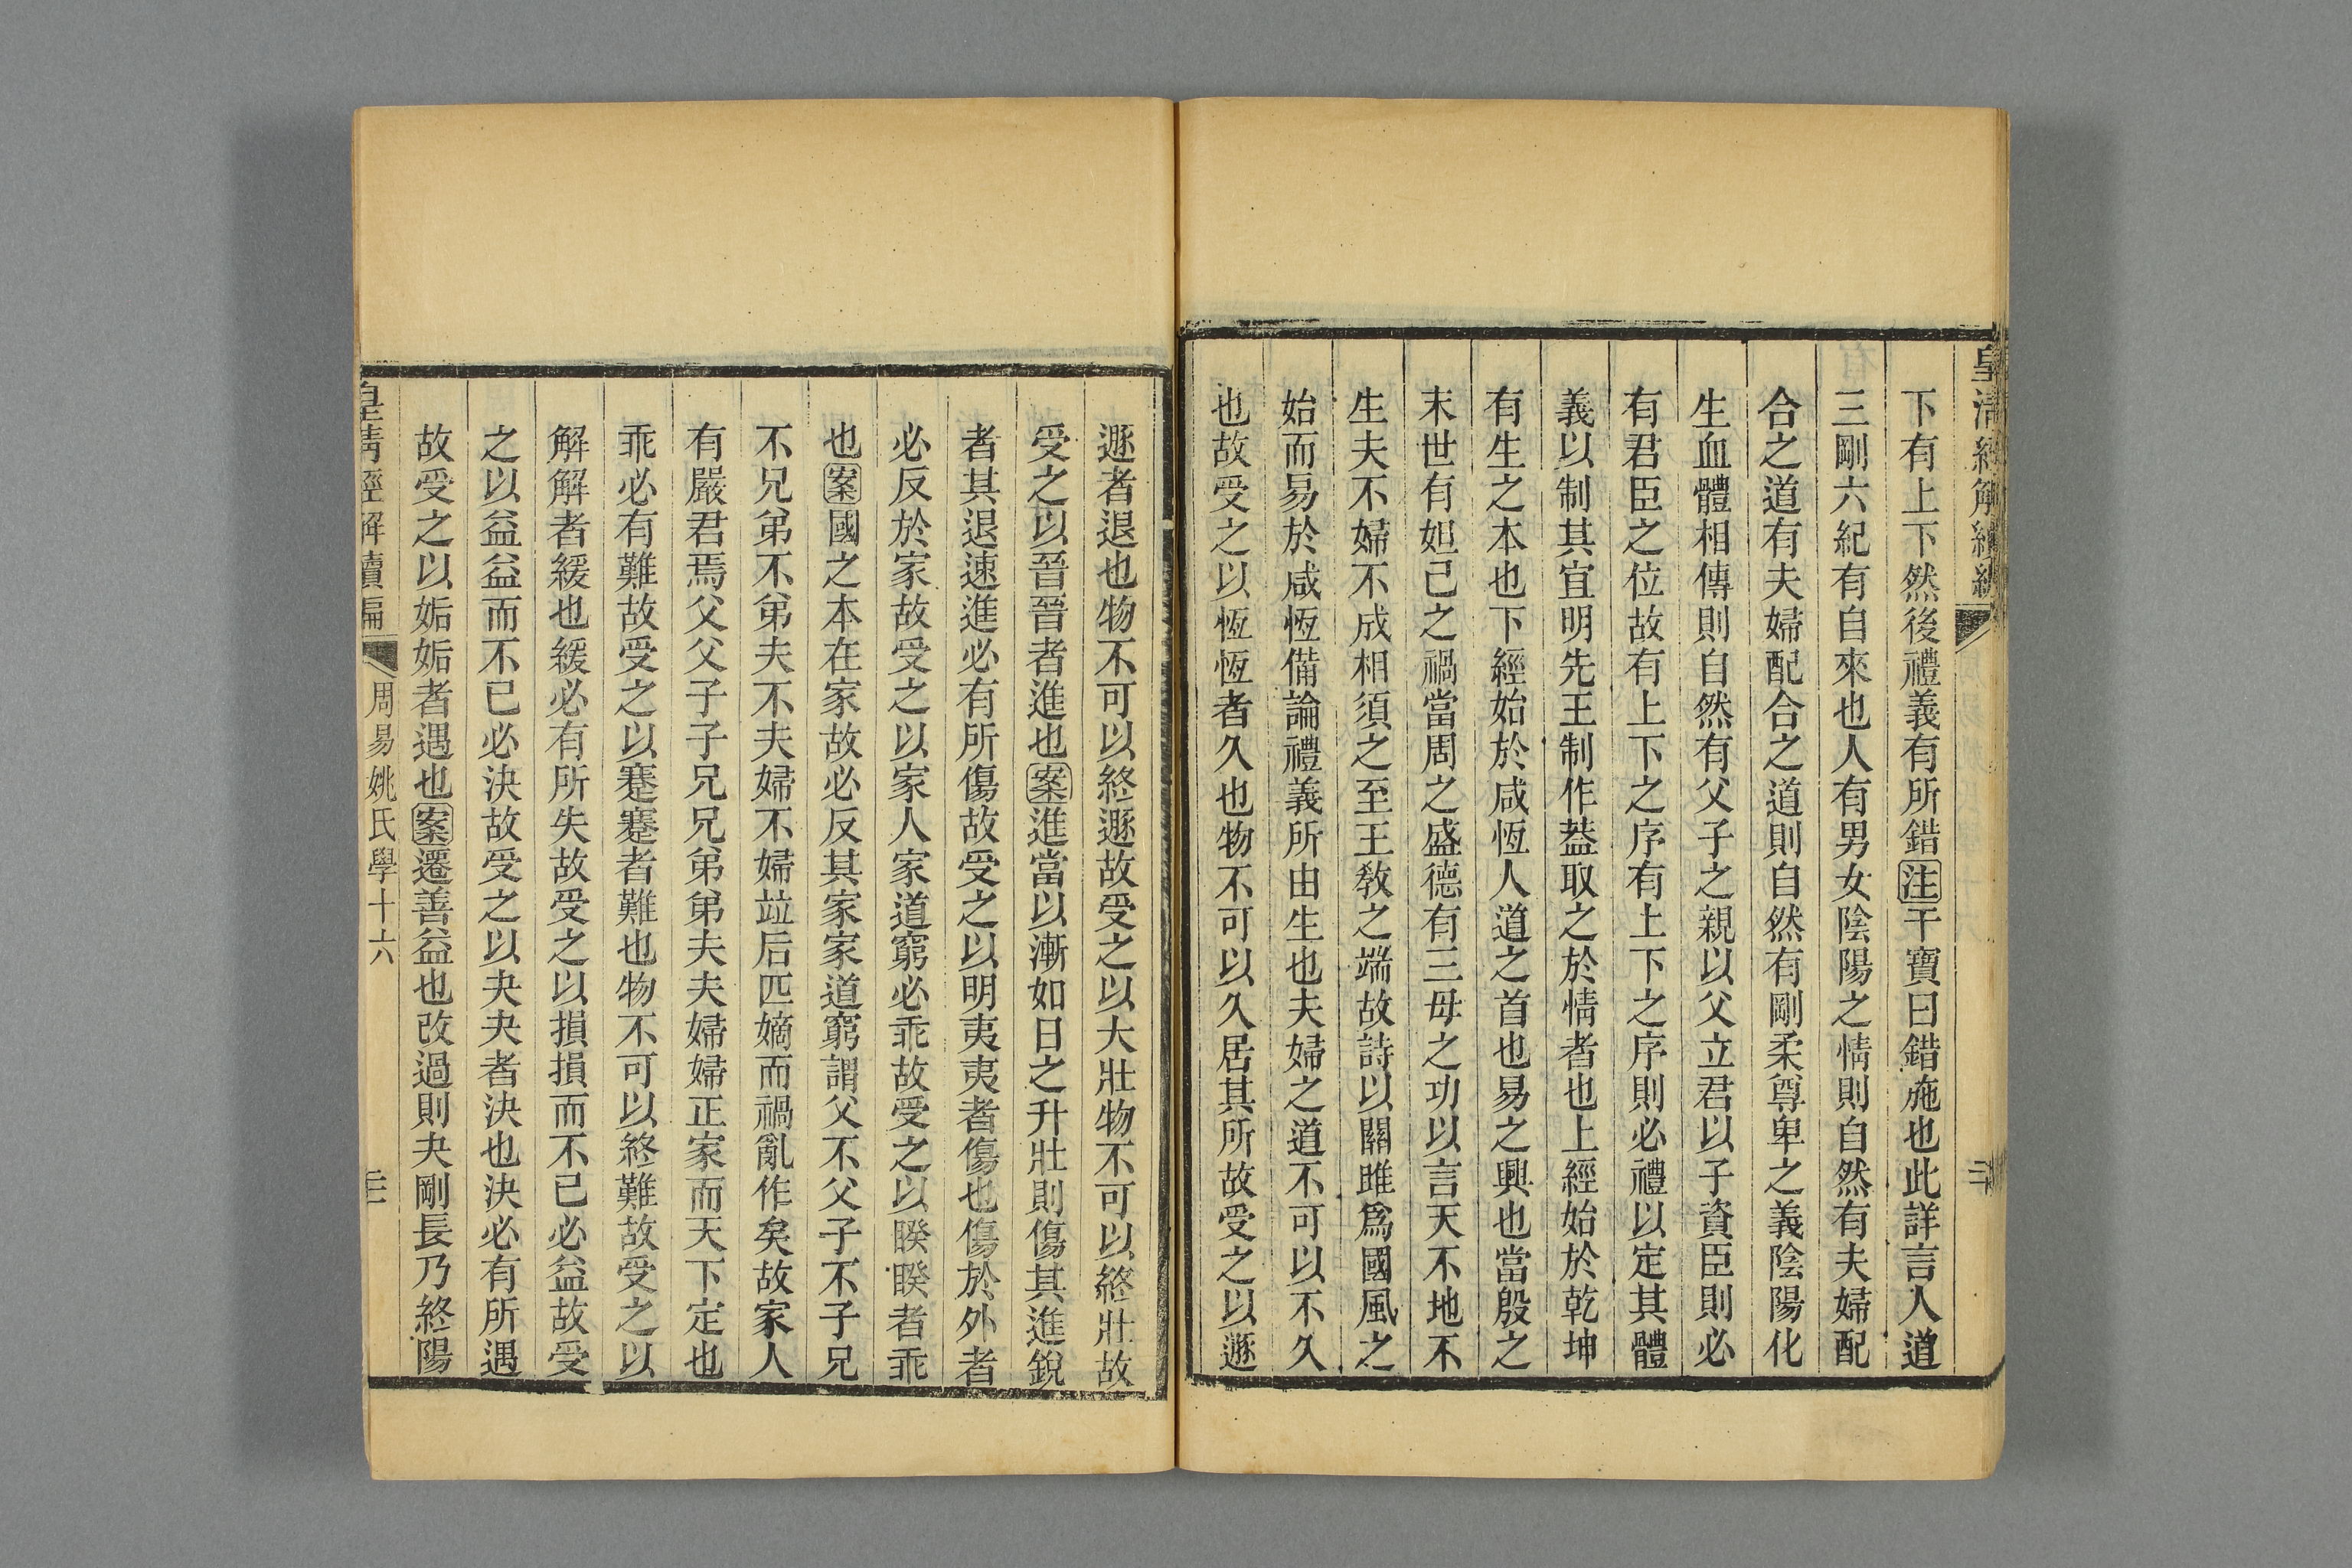 皇清經解續編
二
下有上下然後禮義有所錯注干寶曰錯施也此詳言人道
三剛六紀有自來也人有男女陰陽之情則自然有夫婦配
合之道有夫婦配合之道則自然有剛柔尊卑之義陰陽化
生血體相傳則自然有父子之親以父立君以子資臣則必
有君臣之位故有上下之序有上下之序則必禮以定其體
義以制其宜明先王制作葢取之於情者也上經始於乾坤
有生之本也下經始於咸恆人道之首也易之興也當殷之
末世有妲己之禍當周之盛德有三母之功以言天不地不
生夫不婦不成相須之至王敎之端故詩以關雎爲國風之
始而易於咸恆備論禮義所由生也夫婦之道不可以不久
也故受之以恆恆者久也物不可以久居其所故受之以遯
遯者退也物不可以終遯故受之以大壯物不可以終壯故
受之以晉晉者進也案進當以漸如日之升壯則傷其進銳
者其退速進必有所傷故受之以明夷夷者傷也傷於外者
必反於家故受之以家人家道窮必乖故受之以睽睽者乖
也案國之本在家故必反其家家道窮謂父不父子不子兄
不兄弟不弟夫不夫婦不婦竝后匹嫡而禍亂作矣故家人
有嚴君焉父父子子兄兄弟弟夫夫婦婦正家而天下定也
乖必有難故受之以蹇蹇者難也物不可以終難故受之以
解解者緩也緩必有所失故受之以損損而不已必益故受
之以益益而不已必決故受之以夬夬者決也決必有所遇
故受之以姤姤者遇也案遷善益也改過則夬剛長乃終陽
皇清經解續編
周易姚氏學十六